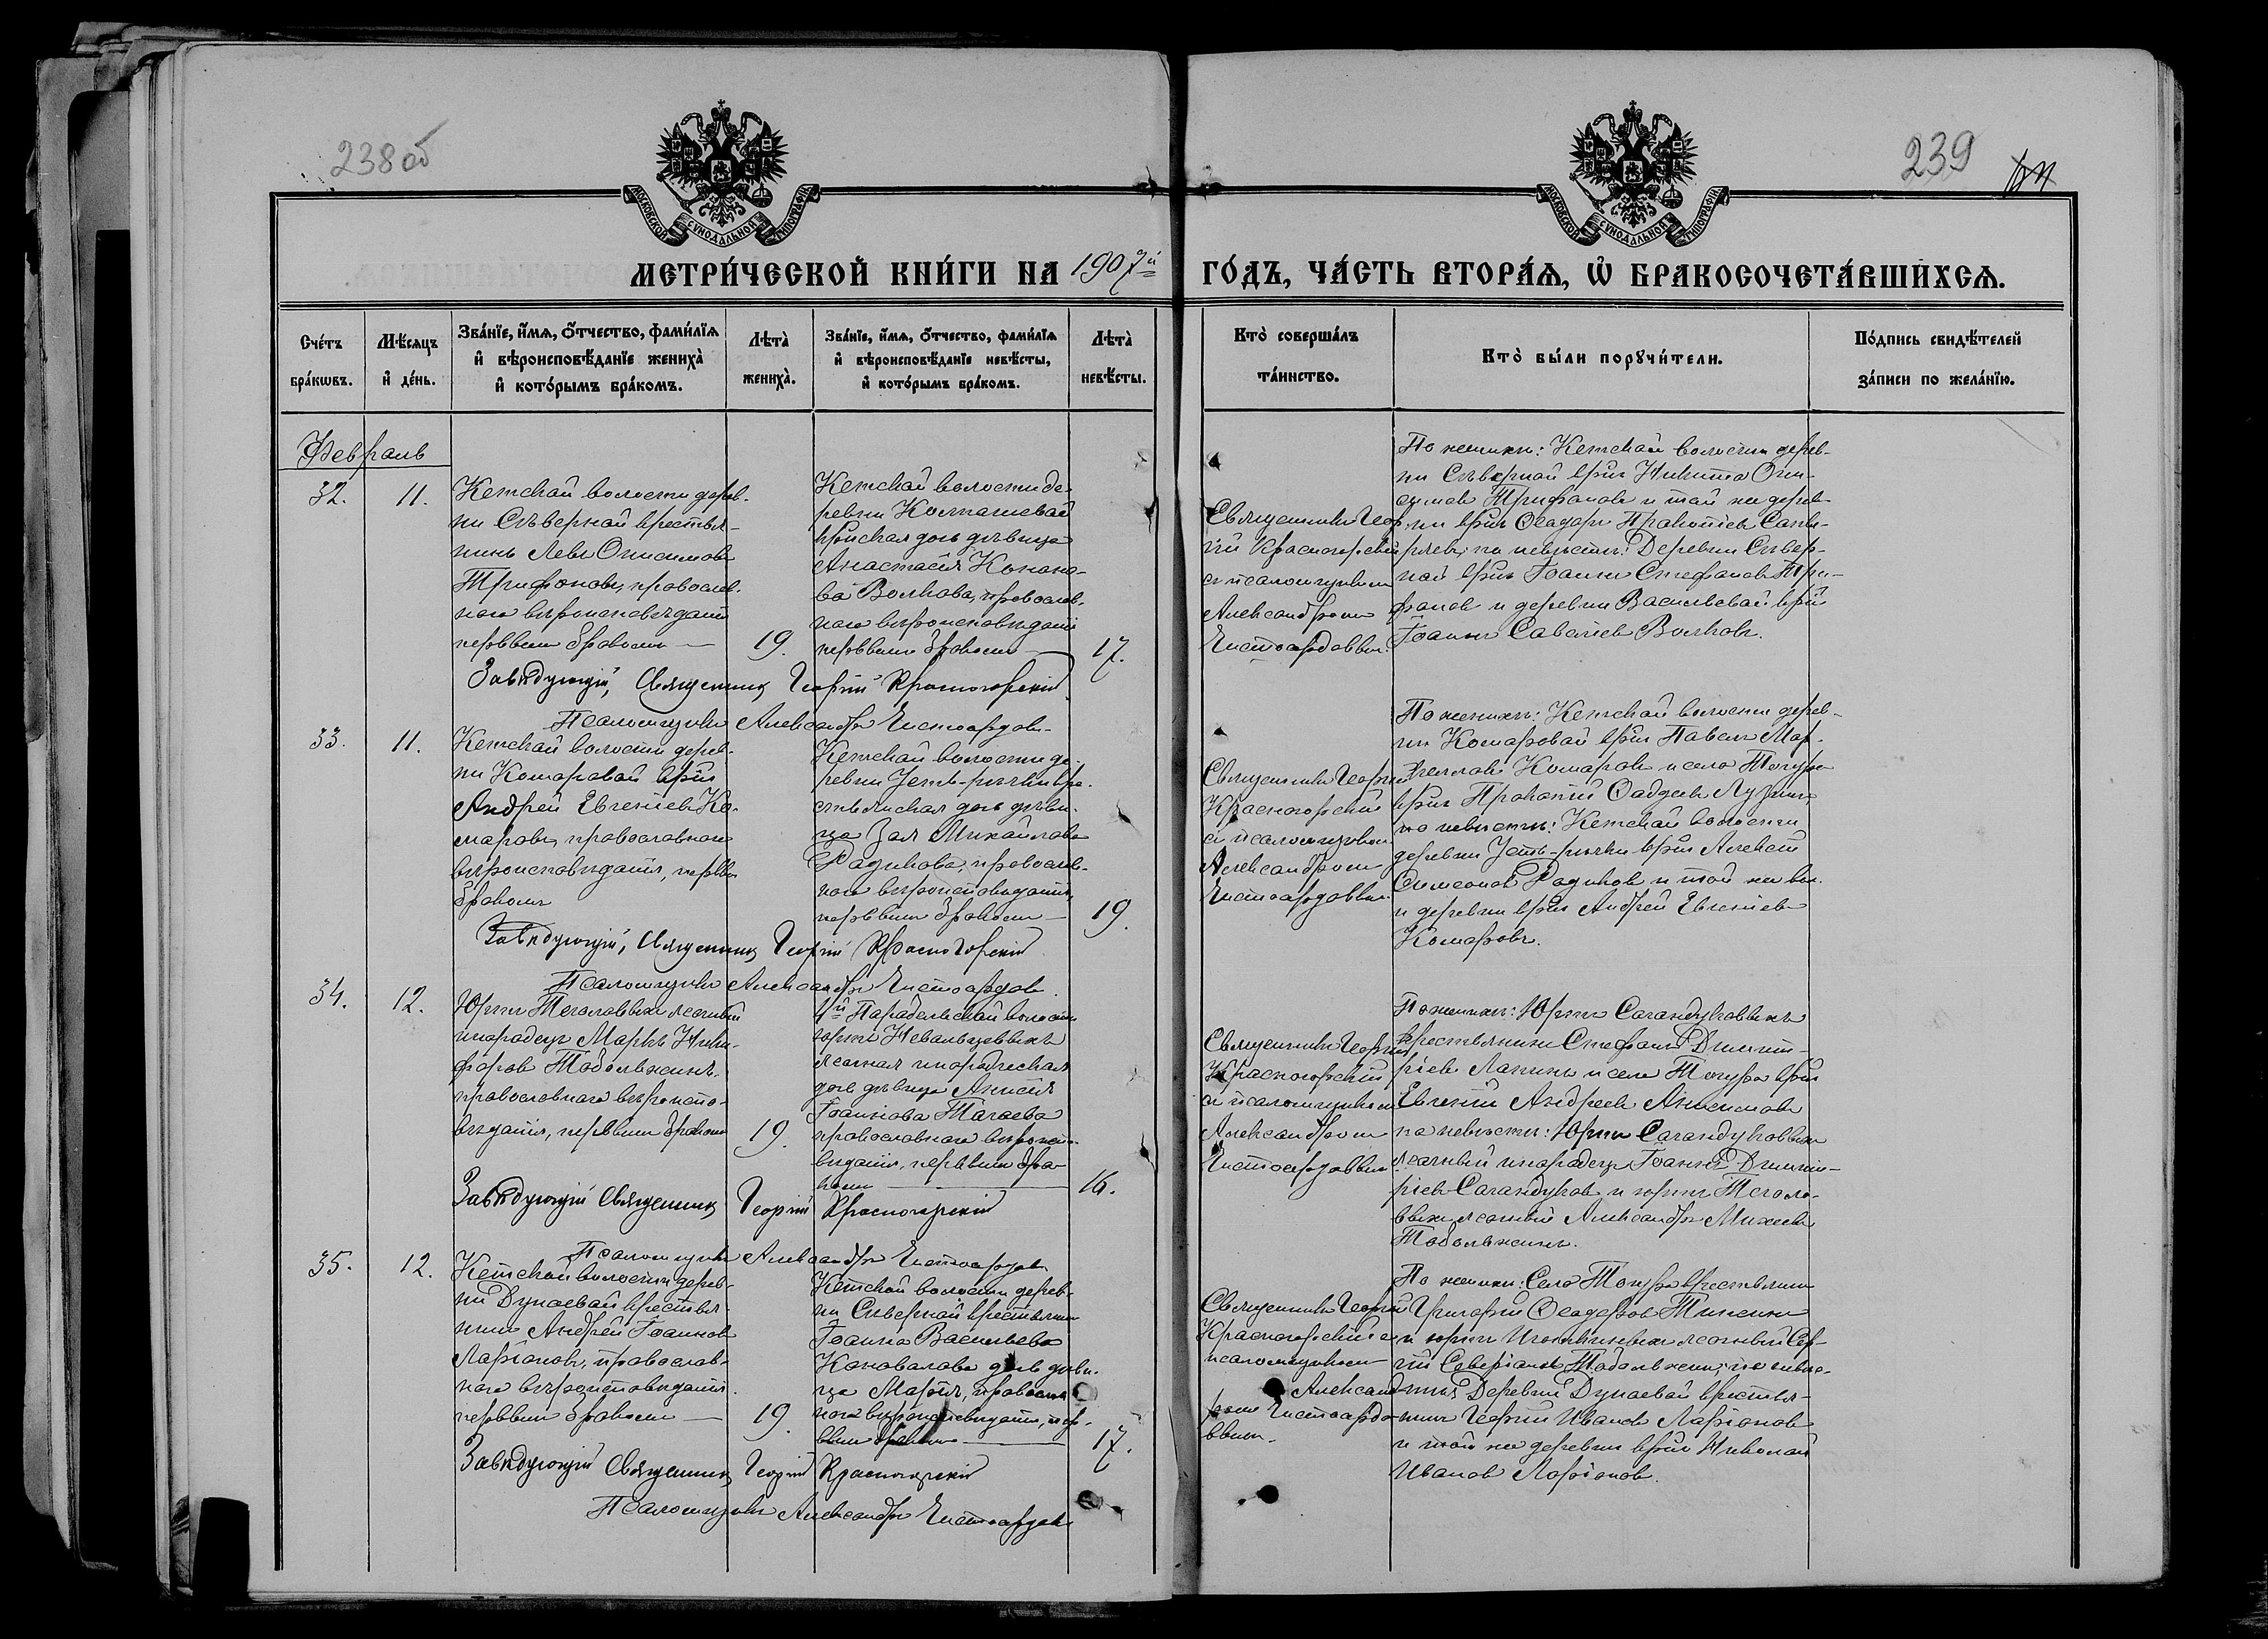 238 об
239
МОСКОВСКОЙ СУНОДАЛЬНОЙ ТИПОГРАФІИ
МОСКОВСКОЙ СУНОДАЛЬНОЙ ТИПОГРАФІИ
МЕТРИ́ЧЕСКОЙ КНИ́ГИ НА 1907й ГО́ДЪ, ЧА́СТЬ ВТОРА́Ѧ, Ѡ҆ БРАКОСОЧЕТА́ВШИХСѦ.
Сче́тъ бра́кѡвъ.
Мѣ́сѧцъ и҆ де́нь.
Зва́нїе, и҆́мѧ, ѻ҆́тчество, фами́лїѧ
и҆ вѣроисповѣ́данїе жениха̀
и҆ кото́рымъ бра́комъ.
Лѣта̀ жениха̀.
Зва́нїе, и҆́мѧ, ѻ҆́тчество, фами́лїѧ
и҆ вѣроисповѣ́данїе невѣ́сты,
и҆ кото́рымъ бра́комъ.
Лѣта̀ невѣ́сты.
Кто̀ соверша́лъ та́инство.
Кто̀ бы́ли порꙋчи́тели.
По́дпись свидѣ́телей
за́писи по жела́нїю.
Февраль
32.
11.
Кетской волости дерев-
ни Сѣверной крестья-
нинъ Левъ Онисимовъ
Трифоновъ, православ-
наго вѣроисповѣданія
первымъ бракомъ
19.
Кетской волости де-
ревни Колпашевой
крсткая дочь дѣвица
Анастасія Конано-
ва Волкова, православ-
наго вѣроисповѣданія
первымъ бракомъ
17.
Священникъ Геор-
гій Красногорскій
съ псаломщикомъ
Александромъ
Чистосердовымъ.
По женихѣ: Кетской волости дерев-
ни Сѣверной крнъ Никита Они-
симовъ Трифоновъ и той же дерев-
ни крнъ Ѳеодоръ Прокопіевъ
по невѣстѣ: Деревни Сѣвер-
ной крнъ Іоаннъ Стефановъ Три-
фоновъ и деревни Васильевой крнъ
Іоаннъ Саватіевъ Волковъ.
Завѣдующій, Священникъ Георгій Красногорскій
Псаломщикъ Александръ Чистосердовъ
33.
11.
Кетской волости дерев-
ни Комаровой крнъ
Андрей Евгеніевъ Ко-
маровъ, православнаго
вѣроисповѣданія, первым
бракомъ
Кетской волости де-
ревни Усть-рѣчки кре-
стьянская дочь дѣви-
ца Зоя Михайлова
Родикова, православ-
наго вѣроисповѣданія,
первымъ бракомъ
19.
Священникъ Георгій
Красногорскій
съ псаломщикомъ
Александромъ
Чистосердовымъ
По женихѣ: Кетской волости дерев-
ни Комаровой крнъ Павелъ Мар-
Комаровъ и села Тогура
крнъ Прокопій Ѳадеевъ Лузинъ,
по невѣстѣ: Кетской волости
деревни Усть-рѣчки крнъ Алексѣй
Симеоновъ Родиковъ и той же вол.
и деревни крнъ Андрей Евгеніевъ
Комаровъ.
Завѣдующій, Священникъ Георгій Красногорскій
Псаломщикъ Александръ Чистосердовъ.
34.
12.
Юртъ Теголовыхъ ясачный
инородецъ Маркъ Ники-
форовъ Тобольжинъ,
православнаго вѣроиспо-
вѣданія, первымъ бракомъ
19.
1й Парабельской волости
юртъ Невальцевыхъ
ясачная инородческая
дочь дѣвица Анисія
Іоаннова Тагаева
православнаго вѣроиспо-
вѣданія, первымъ бра-
комъ
16.
Священникъ Георгій
Красногорскій
съ псаломщикомъ
Александромъ
Чистосердовымъ
По женихѣ: Юртъ Саландуковыхъ
крестьянинъ Стефанъ Димит-
ріевъ Лапинъ и села Тогура крнъ
Евгеній Андреевъ Анисимовъ
по невѣстѣ: Юртъ Саландуковыхъ
ясачный инородецъ Іоаннъ Димит-
ріевъ Саландуковъ и юртъ Теголо-
выхъ ясачный Александръ Михеевъ
Тобольжинъ.
Завѣдующій Священникъ Георгій Красногорскій
Псаломщикъ Александръ Чистосердовъ
35.
12.
Кетской волости дерев-
ни Дунаевой крестья-
нинъ Андрей Іоанновъ
Ларіоновъ, православ-
наго вѣроисповѣданія
первымъ бракомъ
19.
Кетской волости дерев-
ни Сѣверной крестьянина
Іоанна Васильева
Коновалова дочь дѣви-
ца Марія, православ-
наго вѣроисповѣданія, пер-
вымъ бракомъ
17.
Священникъ Георгій
Красногорскій съ
псаломщикомъ
Александ-
ромъ Чистосердо-
вымъ.
По женихѣ: Села Тогура крестьянинъ
Григорій Ѳеодоровъ
и юртъ ясачный Сер-
гій Северіановъ Тобольжинъ; по невѣс-
тѣ: Деревни Дунаевой крестья-
нинъ Георгій Ивановъ Ларіоновъ
и той же деревни крнъ Николай
Ивановъ Ларіоновъ.
Завѣдующій Священникъ Георгій Красногорскій
Псаломщикъ Александръ Чистосердовъ